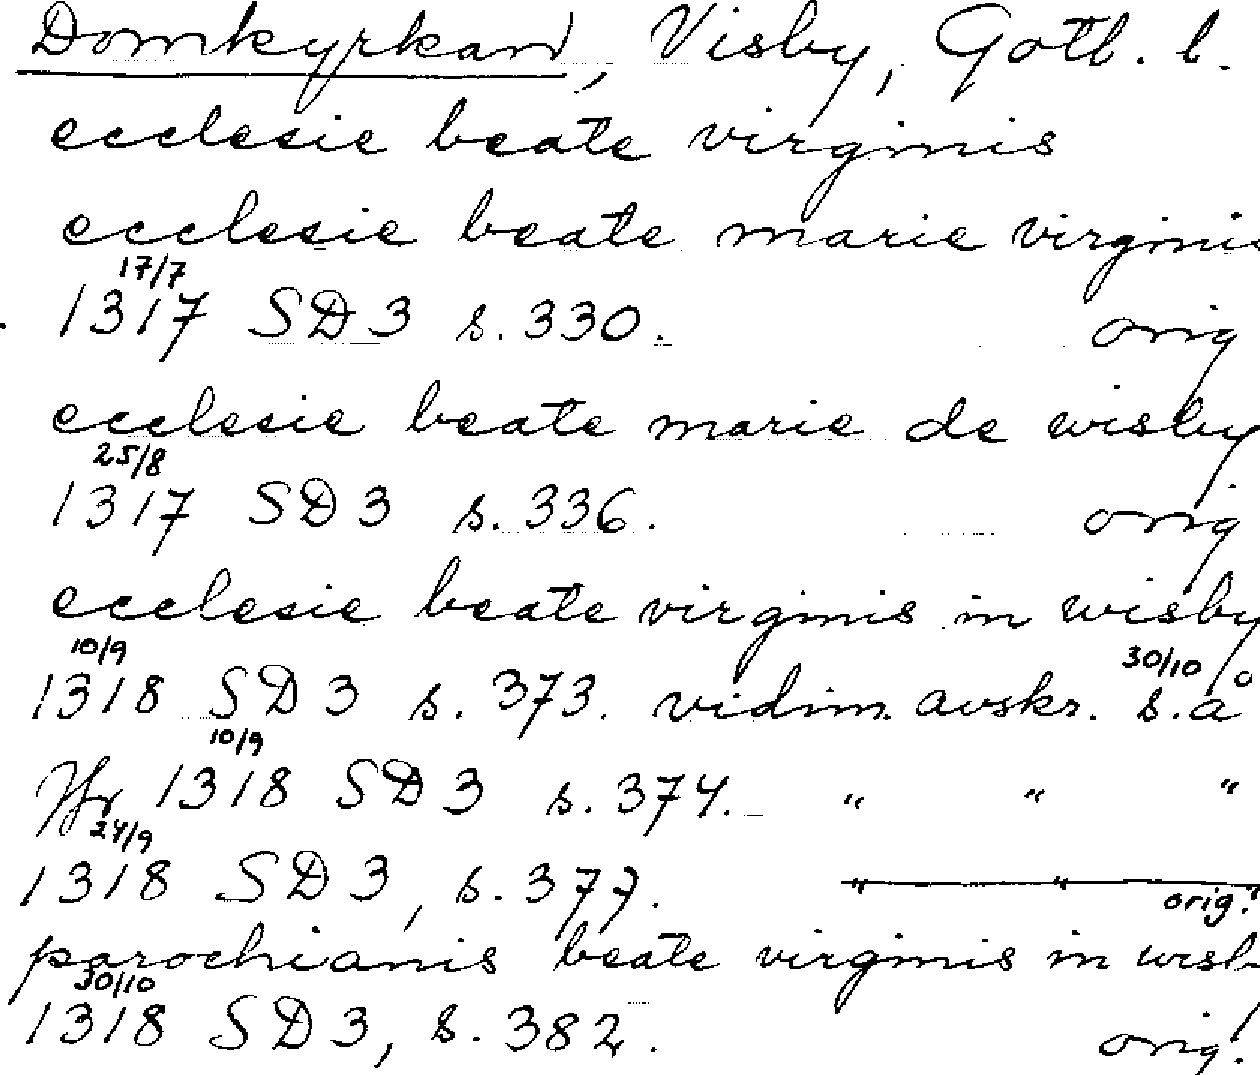 Domkyrkan, Visby, Gotl. l.
ecclesie beate virginis
ecclesie beate marie virginis
17/7
1317 SD 3 s. 330. orig
ecclesie beate marie de wisby
25/8
1317 SD 3 s. 336. orig
ecclesie beate virginis in wisby
10/9 30/10
1318 SD 3 s. 373. vidim. avskr. s.å
10/9
Jfr 1318 SD 3 s. 374. " " "
24/9
1318 SD 3, s. 377. " "
orig.
parochianis beate virginis in wisb
30/10
1318 SD 3, s. 382. orig.